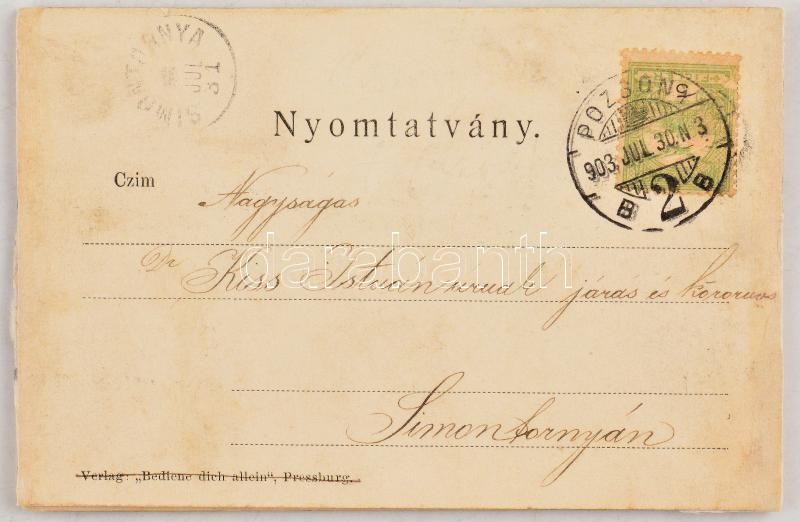 SIMONTORNYA
JUL 31
Nyomtatvány.
POZSONY
903 JUL. 30. N 3
B 2 B
Czim
Nagyságos
Dr Kiss István urnak járás és körorvos
Simontornyán
darabanth
Verlag: „Bediene dich allein“, Pressburg.